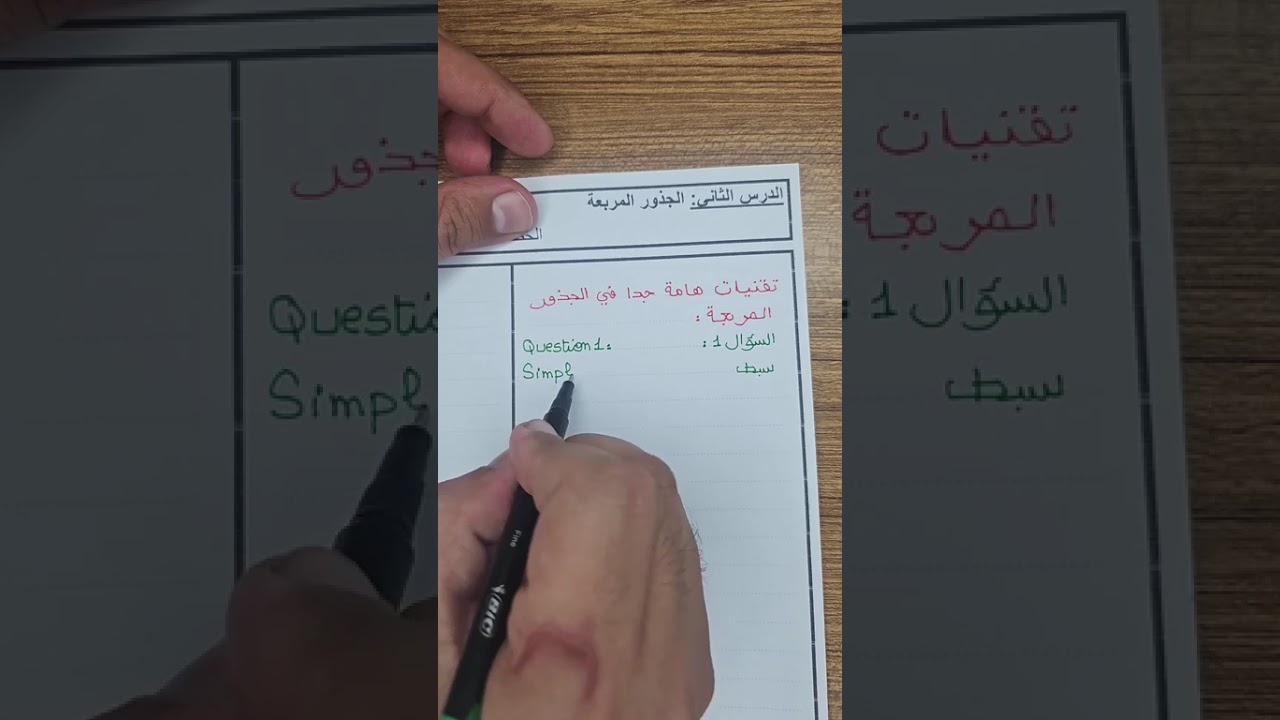 الدرس الثاني: الجذور المربعة
تقنيات هامة جدا في الجذور
المربعة :
السؤال 1 : Question 1 :
سبط Simpl
Fine
BIC